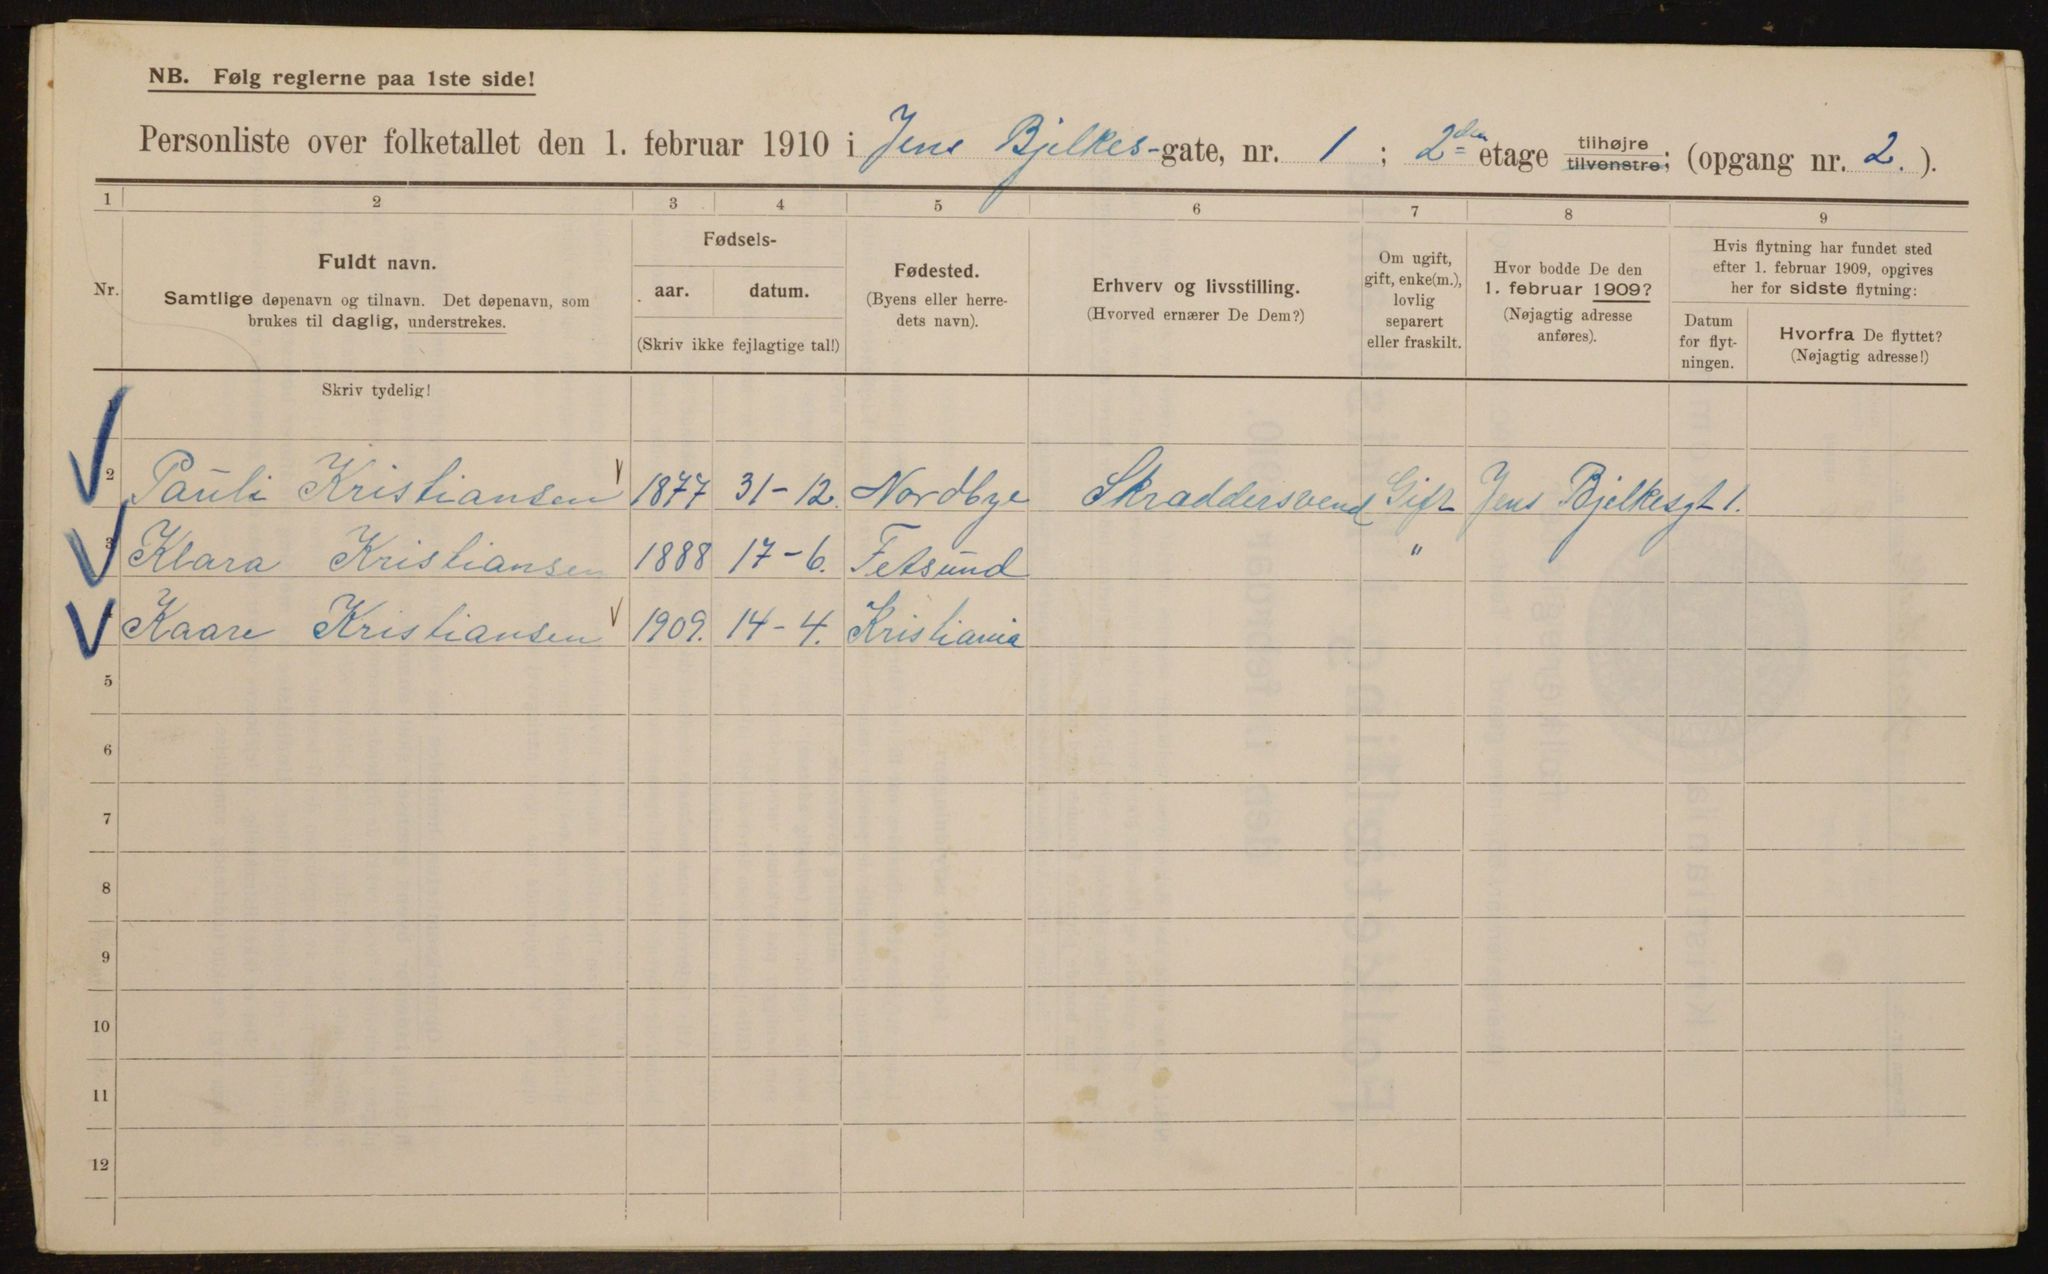 NB. Følg reglerne paa 1ste side!
Personliste over folketallet den 1. februar 1910 i Jens Bjelkes-gate, nr. 1 ; 2den etage tilhøjre tilvenstre; (opgang nr. 2. ).
1 2 3 4 5 6 7 8 9
Nr.
Fuldt navn.
Samtlige døpenavn og tilnavn. Det døpenavn, som
brukes til daglig, understrekes.
Fødsels-
aar. datum.
(Skriv ikke fejlagtige tal!)
Fødested.
(Byens eller herre-
dets navn).
Erhverv og livsstilling.
(Hvorved ernærer De Dem?)
Om ugift,
gift, enke(m.),
lovlig
separert
eller fraskilt.
Hvor bodde De den
1. februar 1909?
(Nøjagtig adresse
anføres).
Hvis flytning har fundet sted
efter 1. februar 1909, opgives
her for sidste flytning:
Datum
for flyt-
ningen.
Hvorfra De flyttet?
(Nøjagtig adresse!)
Skriv tydelig!
1
2 Pauli Kristiansen 1877 31-12. Nordbye Skraddersvend Gift Jens Bjelkesgt 1.
3 Klara Kristiansen 1888 17-6. Fetsund "
4 Kaare Kristiansen 1909. 14-4. Kristiania
5
6
7
8
9
10
11
12